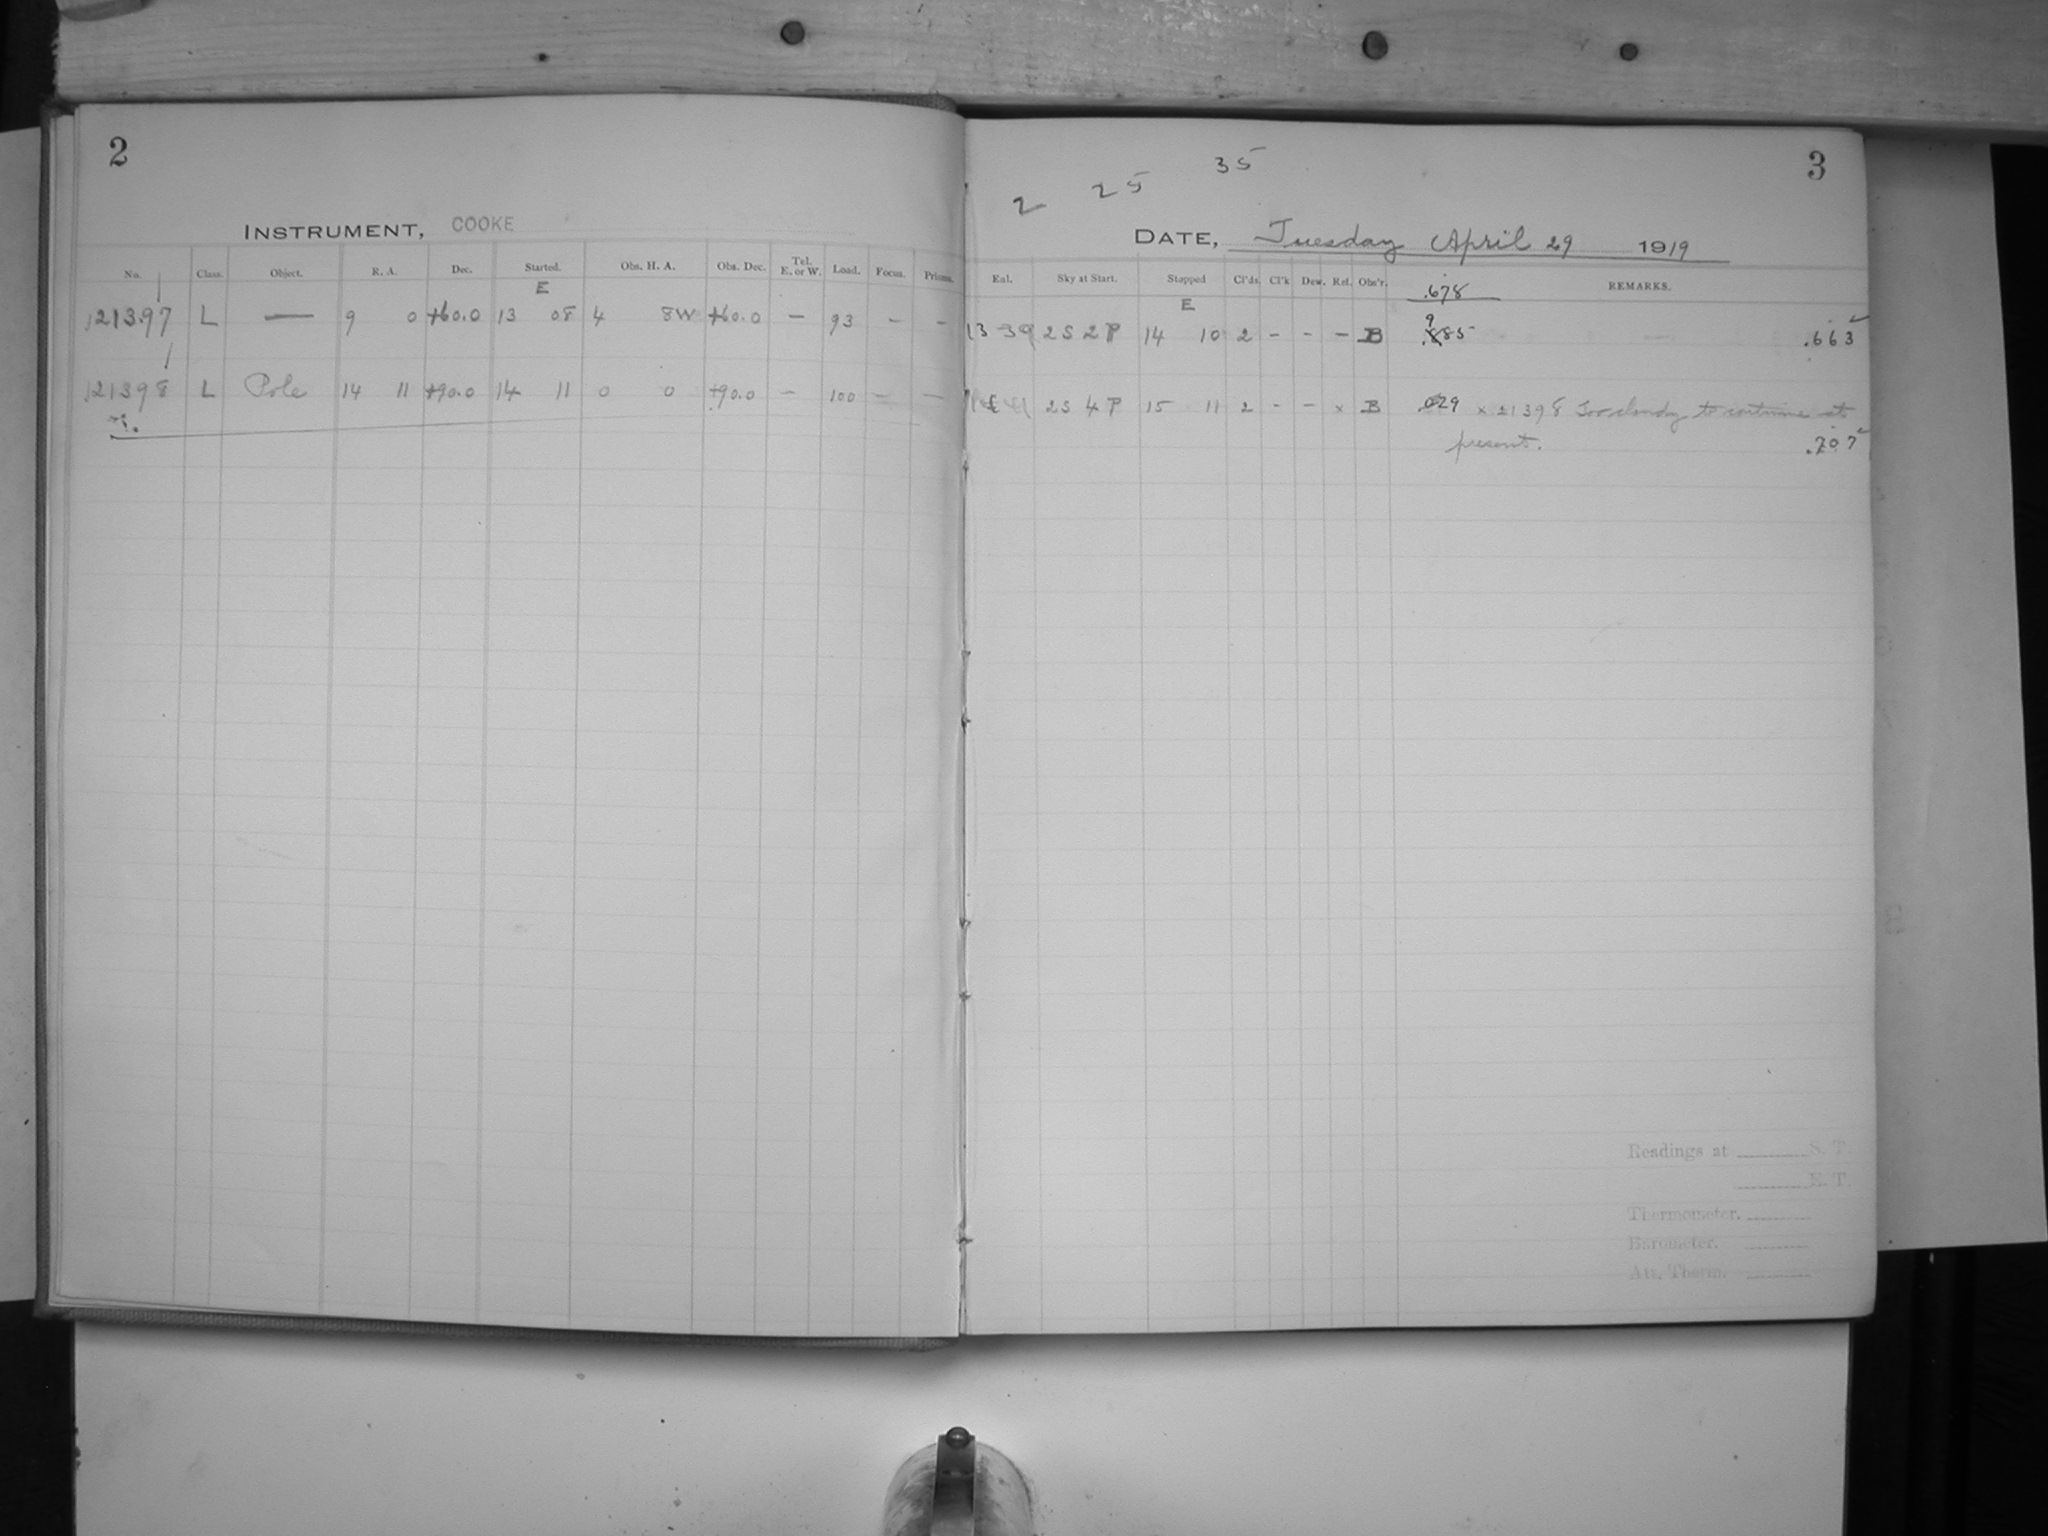 2
INSTRUMENT, COOKE
No. Class. Object. R. A. Dec. Started. Obs. H. A. Obs. Dec. Tel. E. or W. Load. Focus. Prisms.
E
21397 L — 9 0 +60.0 13 08 4 8W +60.0 — 93 — —
21398 L Pole 14 11 +90.0 14 11 0 0 +90.0 — 100 — —
3
2 25 35
DATE, Tuesday April 29 1919
Eql. Sky at Start. Stopped Cl'ds. Cl'k Dew. Rel. Obs'r. .678 REMARKS.
E
13 39 2S 2P 14 10 2 — — — B 9 .885 .663
2S 4P 15 11 2 - - x B .029 x 21398 Too cloudy to continue at
present. .707
Readings at S. T.
E. T.
Thermometer.
Barometer.
Att. Therm.